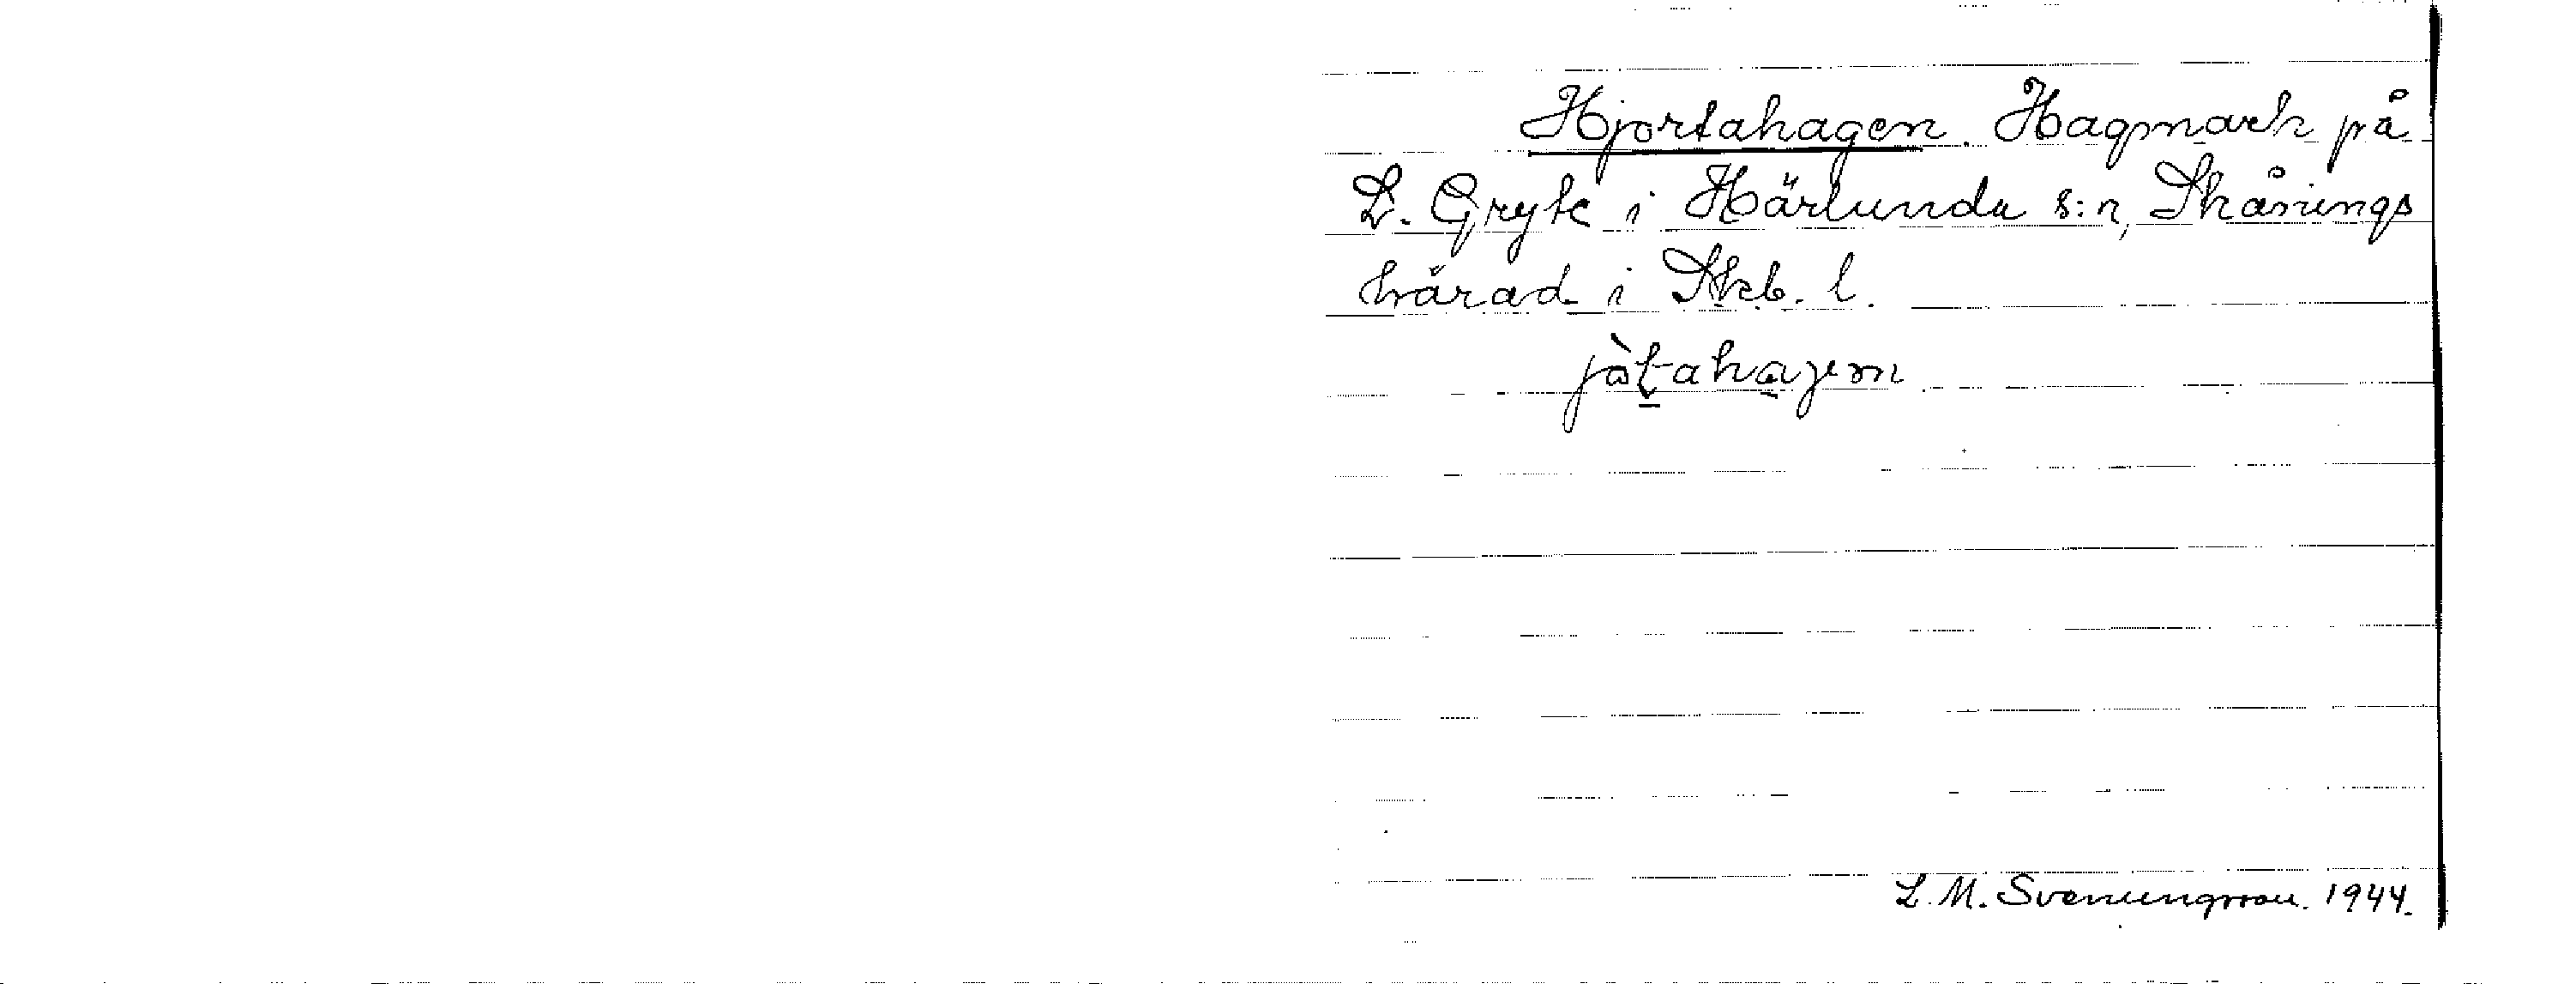 Hjortahagen. Hagmark på
L. Gryte i Härlunda s:n, Skånings
härad i Skb. l.
jòtahagen
L. M. Svenungsson. 1944.